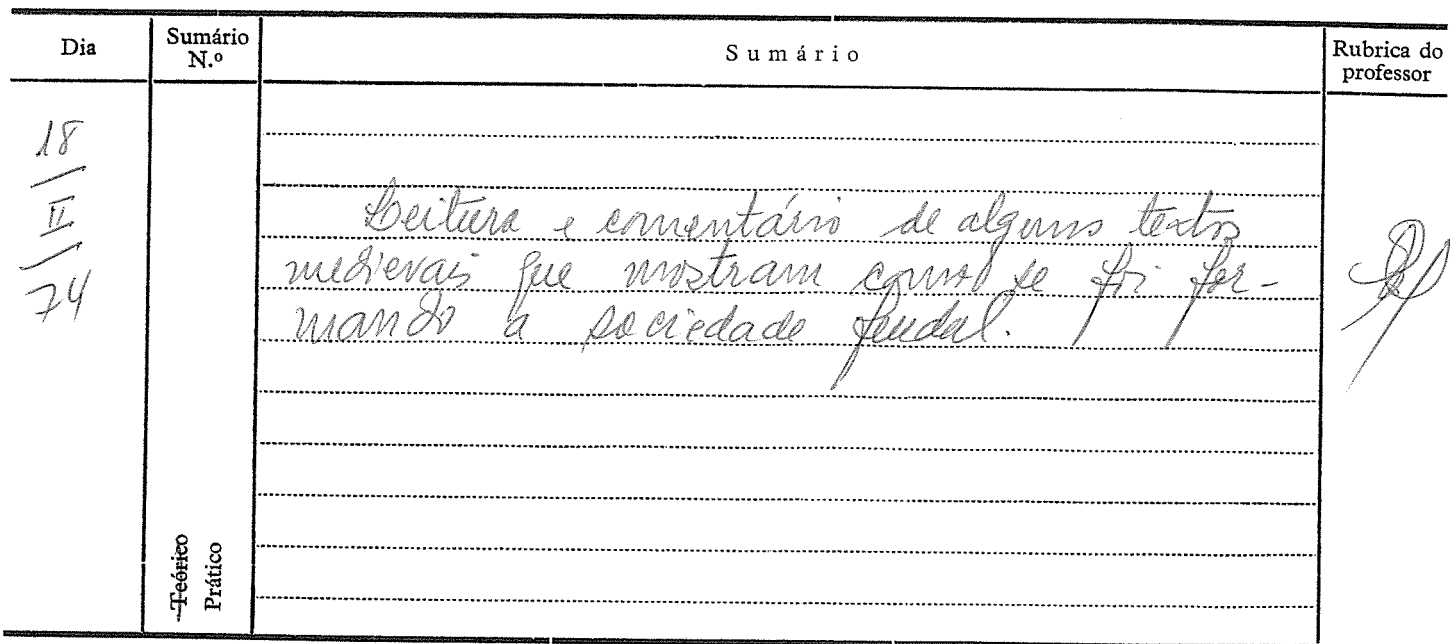 Dia
Sumário N.º
Sumário
Rubrica do professor
18
II
74
Leitura e comentário de alguns textos
medievais que mostram como se foi for-
mando a sociedade feudal.
Teórico
Prático